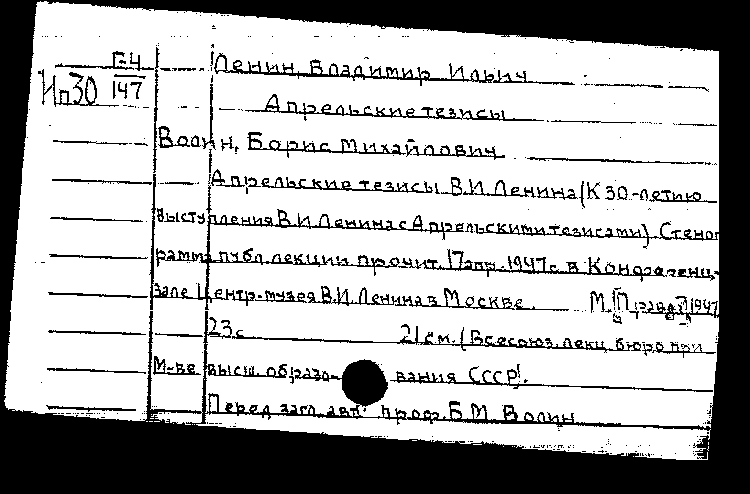 Г-4
147
Ип30
Ленин, Владимир Ильич
Апрельские тезисы
Волин, Борис Михайлович
Апрельские тезисы В.И Ленина (К 30-летию
выступления В.И Ленина с Апрельскими тезисами). Стеног
рамма публ. лекции прочит. 17 апр. 1947 г. в Конференц-
зале Центр. музея В.И. Ленина в Москве. М. 1947
23 с 21 см. (Всесоюз. лекц. бюро при
М-ве высш. образо- вания СССР).
Перед загл. авт: проф. Б.М. Волин